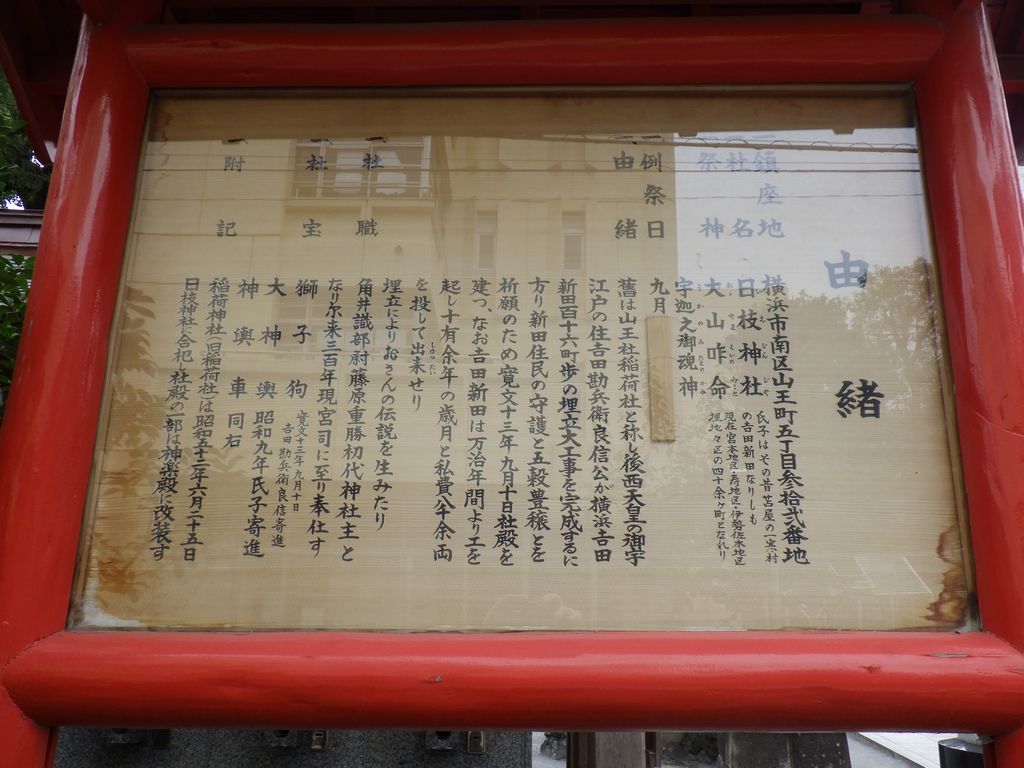 由緒
一鎮座地 横浜市南区山王町五丁目参拾弐番地
一社名 日枝神社
ひえじんじゃ
氏子はその昔苫屋の一寒村
の吉田新田なりしも
現在宮本地区・寿地区・伊勢佐木地区
埋地々区の四十余ヶ町となれり
一祭神 大山咋命
おおやまくいのみこと
宇迦之御魂神
うかのみたまのかみ
一例祭日 九月
一由緒 舊は山王社稲荷社と称し後西天皇の御宇
江戸の住吉田勘兵衛良信公が横浜吉田
新田百十六町歩の埋立大工事を完成するに
方り新田住民の守護と五穀豊穣とを
祈願のため寛文十三年九月十日社殿を
建つ、なお吉田新田は万治年間より工を
起し十有余年の歳月と私費八千余両
を投して出来せり
しゅったい
埋立によりおさんの伝説を生みたり
一社職 角井識部尉藤原重勝初代神社主と
なり尓来三百年現宮司に至り奉仕す
一社宝 獅子狗 寛文十三年九月十日
吉田勘兵衛良信寄進
大神輿 昭和九年氏子寄進
神輿車 同右
一附記 稲荷神社(旧稲荷社)は昭和五十二年六月二十五日
日枝神社に合祀し社殿の一部は神楽殿に改装す